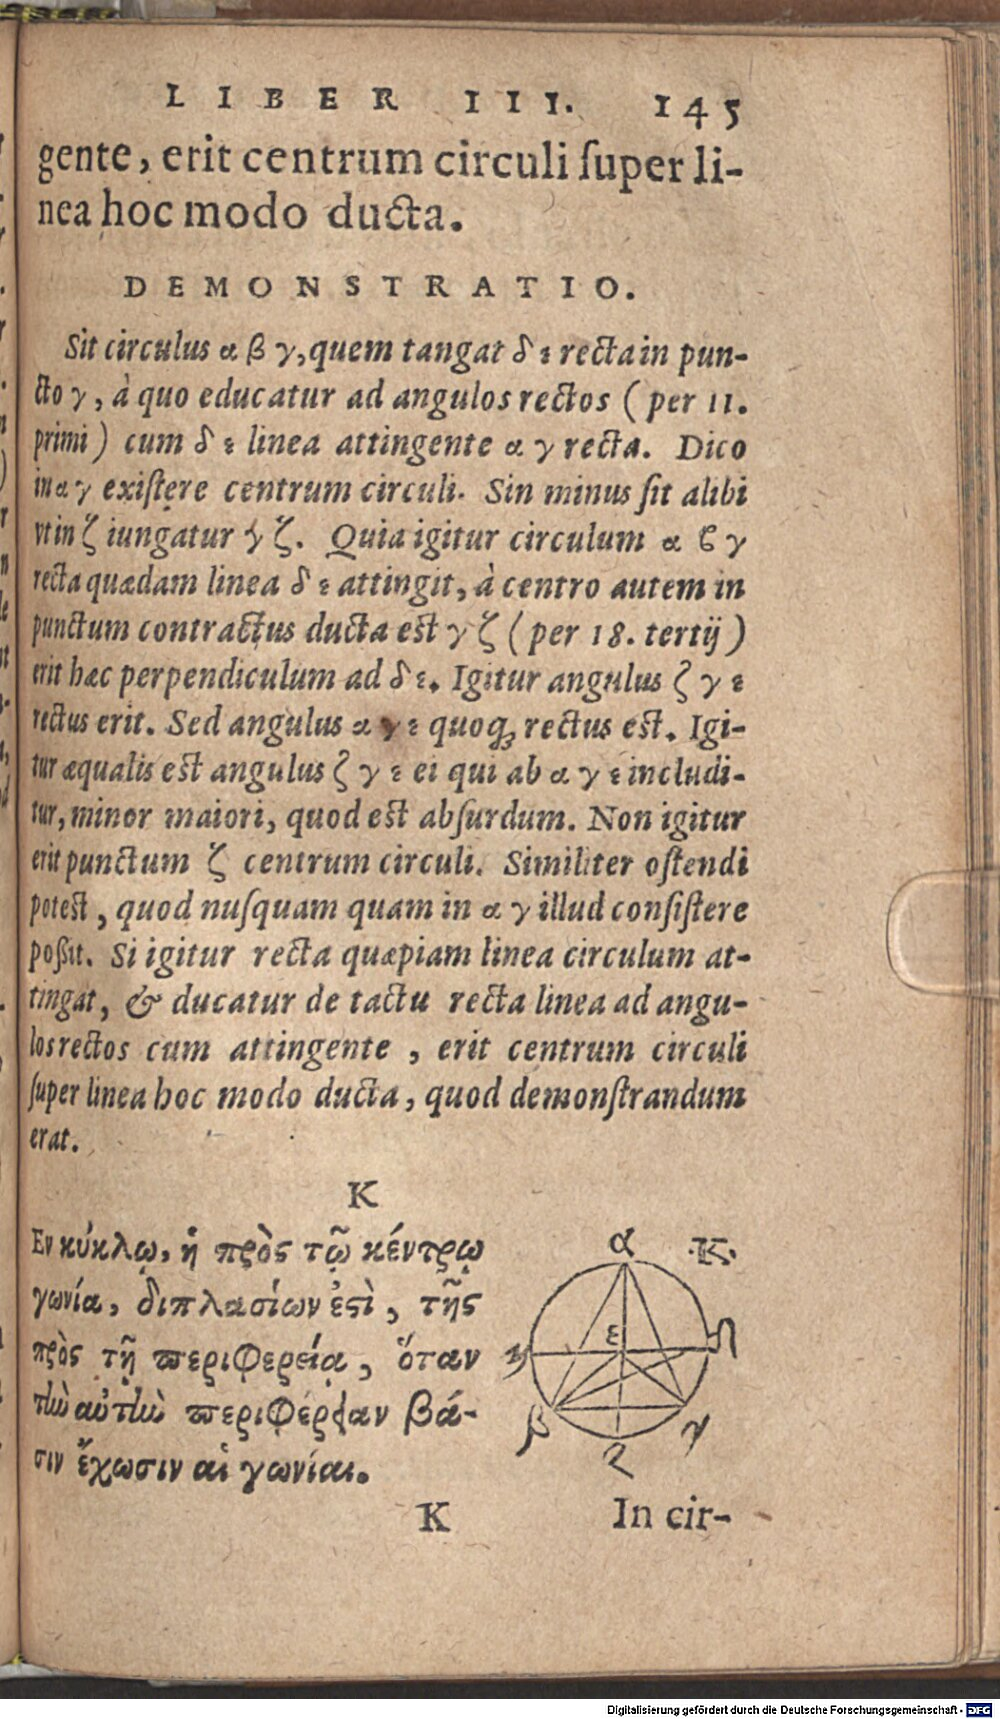 LIBER III. 145
gente, erit centrum circuli ſuper li-
nea hoc modo ducta.
DEMONSTRATIO.
Sit circulus α β γ, quem tangat δ ε recta in pun-
cto γ, à quo educatur ad angulos rectos ( per 11.
primi ) cum δ ε linea attingente α γ recta. Dico
in α γ exiſtere centrum circuli. Sin minus ſit alibi
vt in ζ iungatur γ ζ. Quia igitur circulum α ϐ γ
recta quædam linea δ ε attingit, à centro autem in
punctum contractus ducta est γ ζ ( per 18. tertij )
erit hæc perpendiculum ad δ ε. Igitur angulus ζ γ ε
rectus erit. Sed angulus α γ ε quoq; rectus est. Igi-
tur æqualis est angulus ζ γ ε ei qui ab α γ ε includi-
tur, minor maiori, quod est abſurdum. Non igitur
erit punctum ζ centrum circuli. Similiter oſtendi
potest, quod nuſquam quam in α γ illud conſiſtere
poßit. Si igitur recta quæpiam linea circulum at-
tingat, & ducatur de tactu recta linea ad angu-
los rectos cum attingente, erit centrum circuli
ſuper linea hoc modo ducta, quod demonſtrandum
erat.
K
Εν κύκλῳ, ἡ πρὸς τῷ κέντρῳ
γωνία, διπλασίων ἐϛὶ, τῆς
πρὸς τῇ περιφερείᾳ, ὅταν
τὴν αὐτὴν περιφέρειαν βά-
σιν ἔχωσιν αἱ γωνίαι.
α K.
ε
η
β γ
ζ
K In cir-
Digitalisierung gefördert durch die Deutsche Forschungsgemeinschaft - DFG